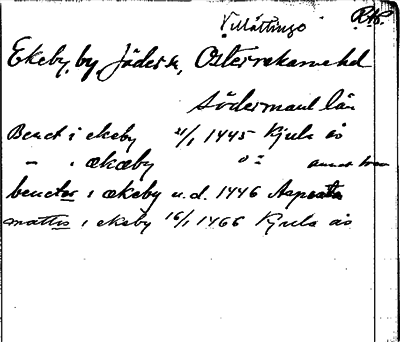 Villåttinge RAP.
Ekeby, by Jäders sn, Österrekarnehd
Södermanl län
Benct i ekeby 21/1 1445 Kjula ås
— " — i ækæby " " annat brev
benctar i ækeby u.d. 1446 Aspesta
mattis i ekeby 16/1 1466 Kjula ås